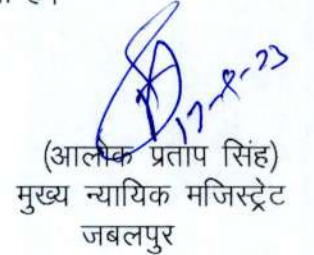 17-8-23
(आलोक प्रताप सिंह)
मुख्य न्यायिक मजिस्ट्रेट
जबलपुर